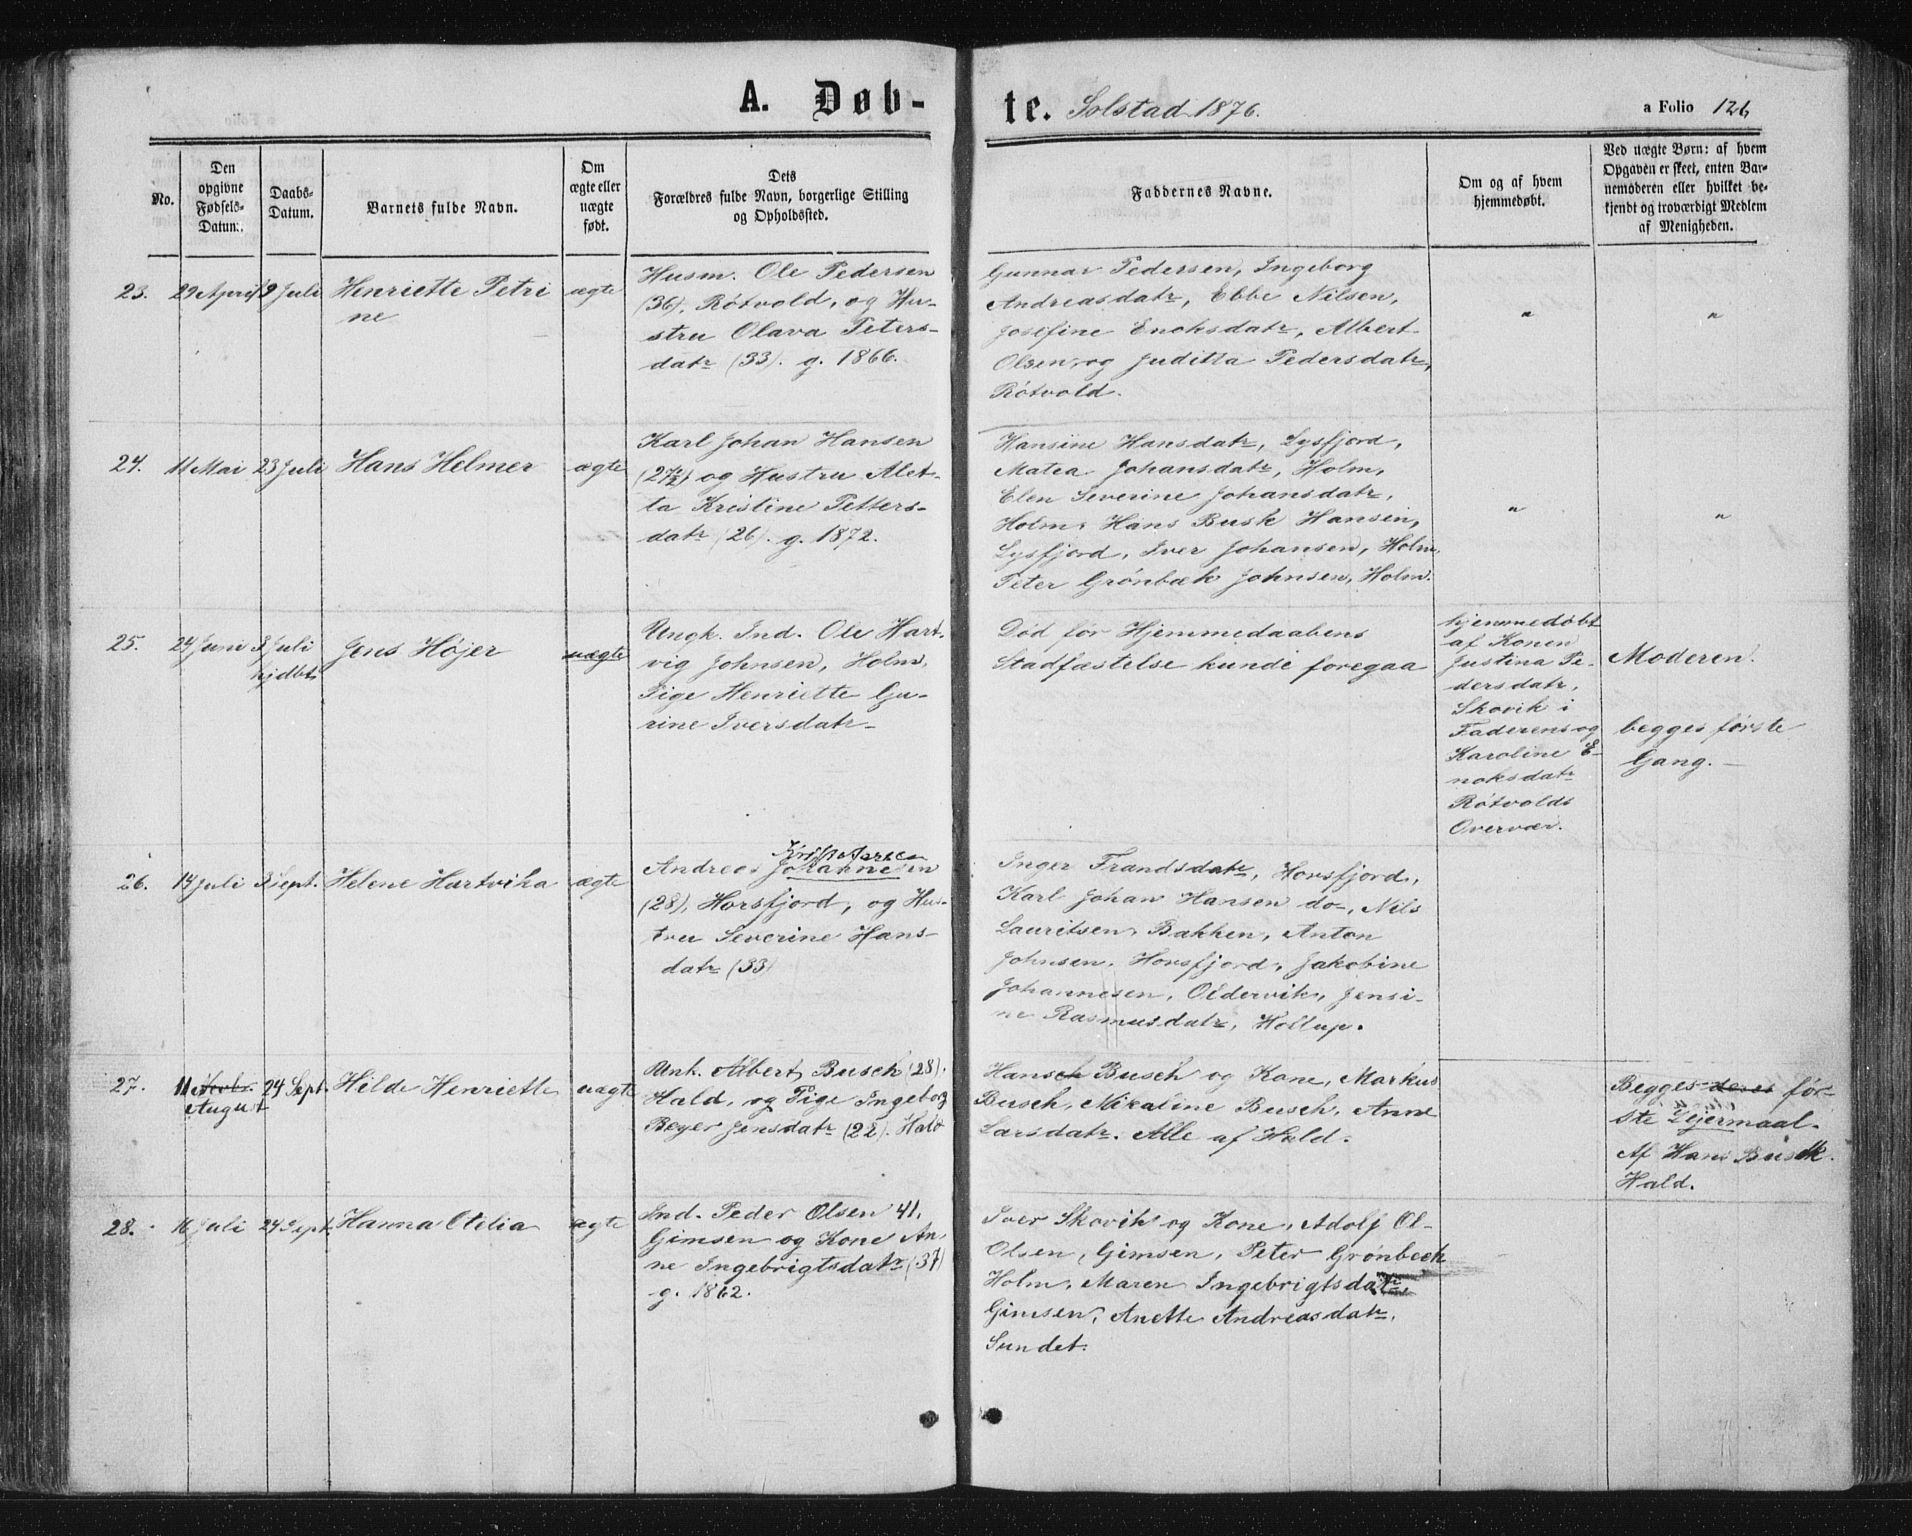 A. Døbte. Solstad 1876. a Folio 126
No.
Den opgivne Fødsels-Datum.
Daabs-Datum.
Barnets fulde Navn.
Om ægte eller uægte født.
Dets Forældres fulde Navn, borgerlige Stilling og Opholdssted.
Faddernes Navne.
Om og af hvem hjemmedøbt.
Ved uægte Børn: af hvem Opgaven er skeet, enten Barnemoderen eller hvilket bekjendt og troværdigt Medlem af Menigheden.
23. 29 April 9 Juli Henriette Petri
ne
ægte
Husm. Ole Pedersen
(36), Røtvold, og Hu-
stru Olava Peters-
datr (33). g. 1866.
Gunnar Pedersen, Ingeborg
Andreasdatr, Ebbe Nilsen,
Josefine Enoksdatr, Albert
Olsen, og Juditta Pedersdatr,
Røtvold.
"
"
24. 11 Mai 23 Juli Hans Helmer ægte
Karl Johan Hansen
(27½) og Hustru Alet-
ta Kristine Petters-
datr (26). g. 1872.
Hansine Hansdatr, Lysfjord,
Matea Johansdatr, Holm,
Elen Severine Johansdatr,
Holm, Hans Busk Hansen,
Lysfjord, Iver Johansen, Holm,
Peter Grønbæk Johnsen, Holm.
"
"
25. 24 Juni 3 Juli
hjdbt
Jens Højer uægte
Ungk. Ind. Ole Hart-
vig Johnsen, Holm,
Pige Henriette Gu-
rine Iversdatr-
Død før Hjemmedaabens
Stadfæstelse kunde foregaa
hjemmedøbt
af Konen
Justina Pe-
dersdatr,
Skovik i
Faderens og
Karoline E-
noksdatr
Røtvolds
Overvær.
Moderen.
begges første
Gang.-
26. 14 Juli 3 Sept. Helene Hartvika ægte
Andreas Johannesen
(28), Horsfjord, og Hus-
tru Severine Hans-
datr (33)
Inger Frandsdatr, Horsfjord,
Karl Johan Hansen do-, Nils
Lauritsen, Bakken, Anton
Johnsen, Horsfjord, Jakobine
Johannesen, Oldervik, Jensi-
ne Rasmusdatr, Hollup.
27. 11 August 24 Sept. Hilde Henriette uægte
Unk. Albert Busch (28),
Hald, og Pige Ingeborg
Beyer Jensdatr (22). Hald
Hans Busch og Kone, Markus
Busch, Nikaline Busch, Anne
Larsdatr. Alle af Hald.
Begges deres før-
ste Lejermaal.
Af Hans Busch
Hald.
28. 16 Juli 24 Sept. Hanna Otelia ægte
Ind. Peder Olsen 41,
Gimsen og Kone An-
ne Ingebrigtsdatr (37)
g. 1862.
Iver Skovik og Kone, Adolf Ol-
Olsen, Gimsen, Peter Grønbech
Holm, Maren Ingebrigtsdatr
Gimsen, Anette Andreasdatr,
Sundet.